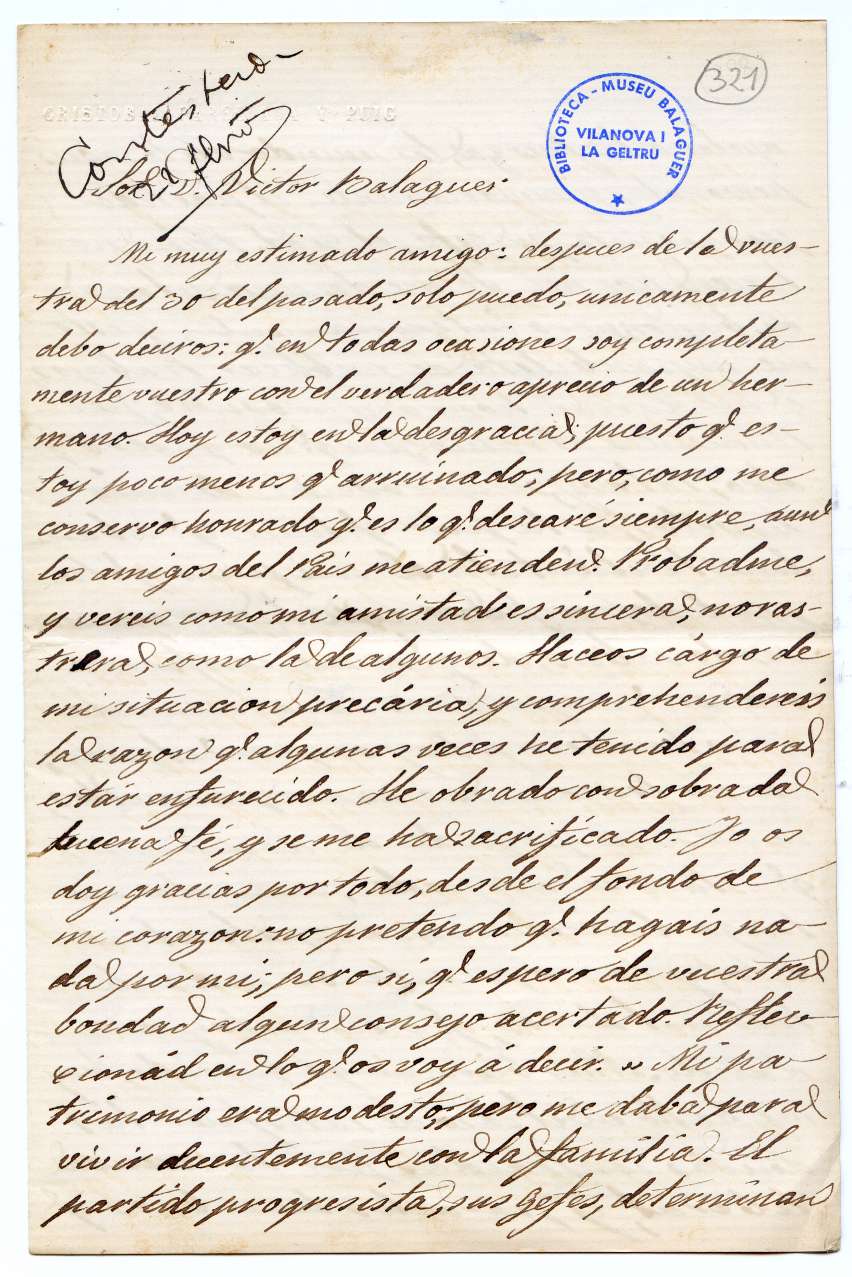 321
BIBLIOTECA - MUSEU BALAGUER
VILANOVA I
LA GELTRU
Contestada
Sor. D. Victor Balaguer
Mi muy estimado amigo: despues de la vues-
tra del 30 del pasado, solo puedo, unicamente
debo deciros: q.e en todas ocasiones soy completa-
mente vuestro con el verdadero aprecio de un her-
mano. Hoy estoy en la desgracia; puesto q.e es-
toy poco menos q.e arruinado; pero, como me
conservo honrado q.e es lo q.e desearé siempre, aun
los amigos del País me atienden. Probadme,
y vereis como mi amistad es sincera, no ras-
trera, como la de algunos. Haceos cárgo de
mi situacion precária, y comprehendereis
la razon q.e algunas veces he tenido para
estár enfurecido. He obrado con sobrada
buena fé, y se me ha sacrificado. Yo os
doy gracias por todo, desde el fondo de
mi corazon: no pretendo q.e hagais na-
da por mi; pero si, q.e espero de vuestra
bondad algun consejo acertado. Reflec-
cionád en lo q.e os voy á decir. " Mi pa
trimonio era modesto; pero me daba para
vivir decentemente con la família. El
partido progresista, sus gefes, determinan